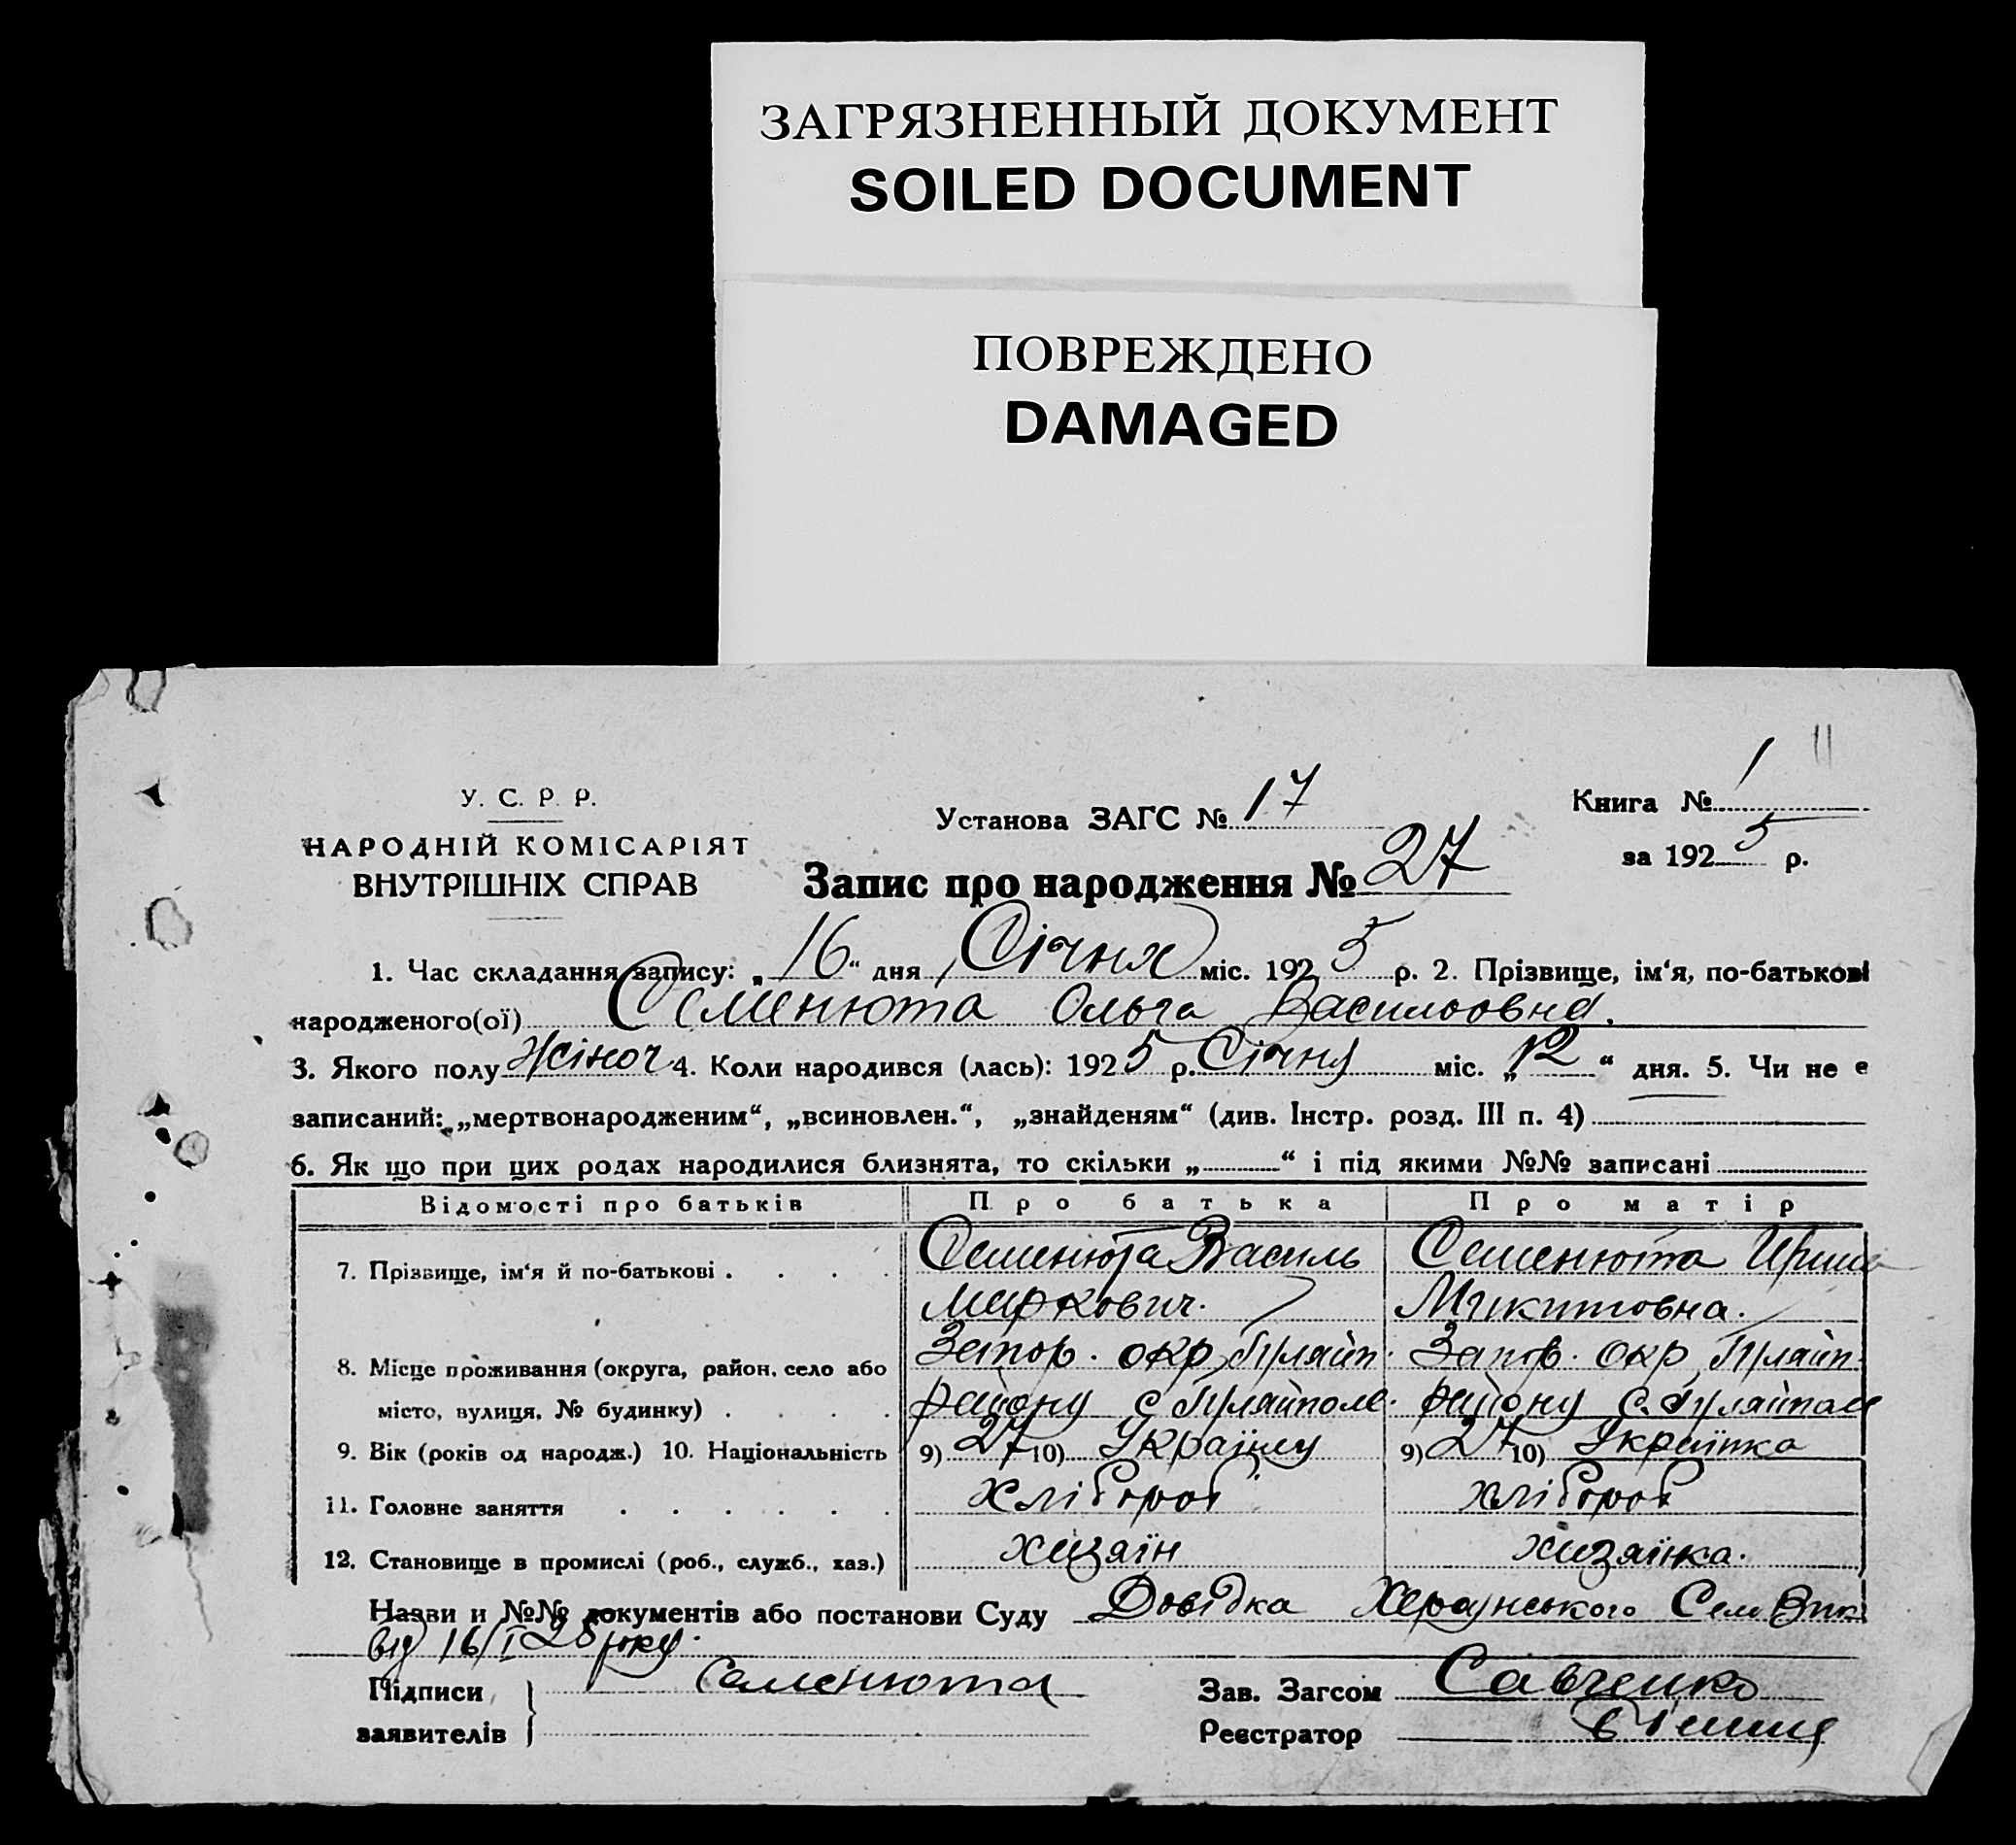 ЗАГРЯЗНЕННЫЙ ДОКУМЕНТ
SOILED DOCUMENT
ПОВРЕЖДЕНО
DAMAGED
У. С. Р. Р.
НАРОДНІЙ КОМІСАРІЯТ
ВНУТРІШНІХ СПРАВ
Установа ЗАГС № 17
Запис про народження № 27
Книга № 1
11
за 1925 р.
1. Час складання запису: „16“ дня Січня міс. 1925 р. 2. Прізвище, ім‘я, по-батькові
народженого(ої) Семенюта Ольга Васильовна.
3. Якого полу Жіноч 4. Коли народився (лась): 1925 р. Січня міс. „12“ дня. 5. Чи не є
записаний: „мертвонародженим“, „всиновлен.“, „знайденям“ (див. Інстр. розд. III п. 4)
6. Як що при цих родах народилися близнята, то скільки „ “ і під якими №№ записані
Відомості про батьків Про батька Про матір
7. Прізвище, ім‘я й по-батькові . . . . Семенюта Василь Семенюта Ирина
Маркович. Микитовна.
8. Місце проживання (округа, район, село або Запор. окр Гуляйп. Запор. окр Гуляйп.
місто, вулиця, № будинку) . . . . району с Гуляйполе. району с. Гуляйполе
9. Вік (років од народж.) 10. Національність 9) 27 10) 9) 27 10) Українка
11. Головне заняття . . . . . . Хлібороб хлібороб
12. Становище в промислі (роб., служб., хаз.) хазяїн хазяїнка.
Назви и №№ документів або постанови Суду Довідка Села Вик
від 16/I 25 року.
Підписи Семенюта Зав. Загсом Савченко
заявителів Реєстратор